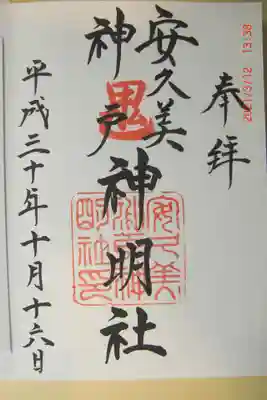 奉拝
安久美
神戸神明社
平成三十年十月十六日
2021/3/12 13:38